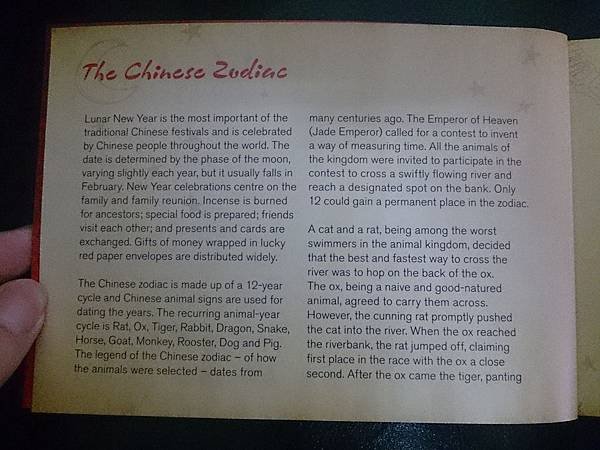 The Chinese Zodiac
Lunar New Year is the most important of the
traditional Chinese festivals and is celebrated
by Chinese people throughout the world. The
date is determined by the phase of the moon,
varying slightly each year, but it usually falls in
February. New Year celebrations centre on the
family and family reunion. Incense is burned
for ancestors; special food is prepared; friends
visit each other; and presents and cards are
exchanged. Gifts of money wrapped in lucky
red paper envelopes are distributed widely.
The Chinese zodiac is made up of a 12-year
cycle and Chinese animal signs are used for
dating the years. The recurring animal-year
cycle is Rat, Ox, Tiger, Rabbit, Dragon, Snake,
Horse, Goat, Monkey, Rooster, Dog and Pig.
The legend of the Chinese zodiac – of how
the animals were selected – dates from
many centuries ago. The Emperor of Heaven
(Jade Emperor) called for a contest to invent
a way of measuring time. All the animals of
the kingdom were invited to participate in the
contest to cross a swiftly flowing river and
reach a designated spot on the bank. Only
12 could gain a permanent place in the zodiac.
A cat and a rat, being among the worst
swimmers in the animal kingdom, decided
that the best and fastest way to cross the
river was to hop on the back of the ox.
The ox, being a naive and good-natured
animal, agreed to carry them across.
However, the cunning rat promptly pushed
the cat into the river. When the ox reached
the riverbank, the rat jumped off, claiming
first place in the race with the ox a close
second. After the ox came the tiger, panting